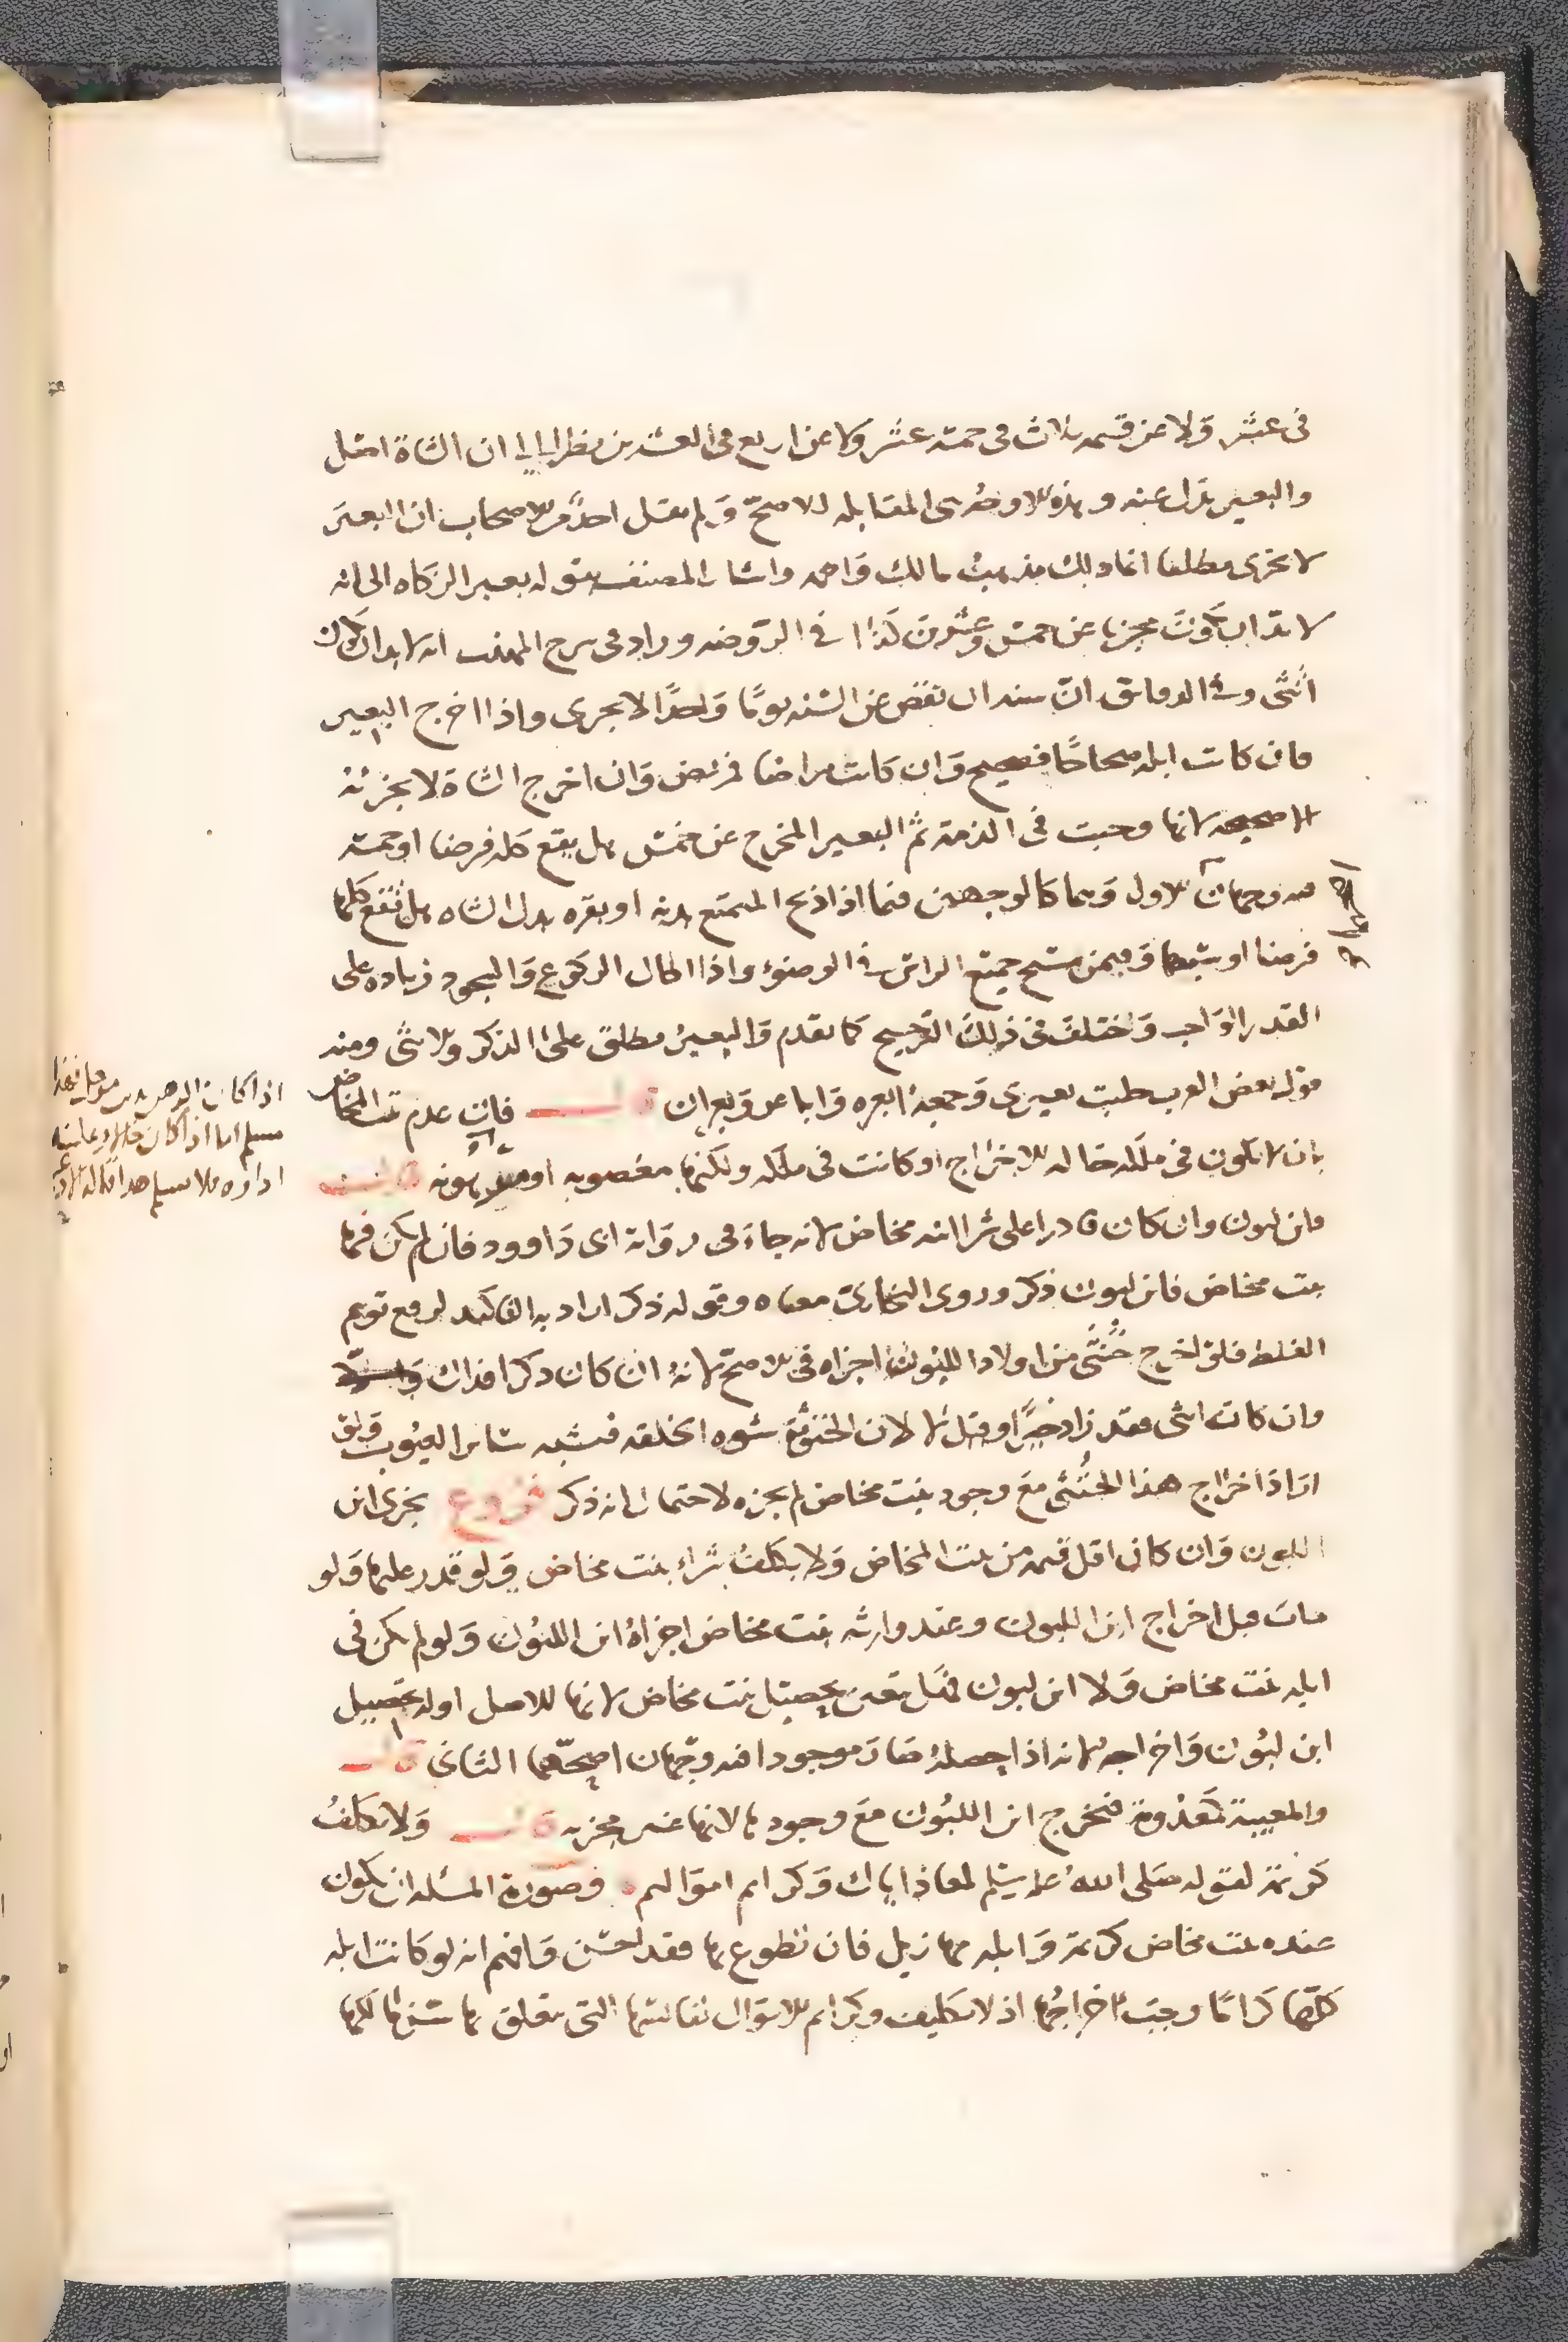 في عشر ولا عن قيمه ثلاث في خمسة عشر ولا عن اربع في العشرين نظرا الى ان الشاة اصل
والبعير بدل عنه وهذه الاوجه هي المقابله للاصح ولم يقل احد من الاصحاب ان البعير
لا يجزي مطلقا انما ذلك مذهب مالك واحمد واشار المصنف بقوله بعير الزكاه الى انه
لا بد ان يكون مجزيا عن خمس وعشرين كذا في الروضه وزاد في شرح المهذب انه لا بد ان يكون
انثى وفي الدقائق ان سنه ان نقص عن السنه يوما واحدا لا يجزي واذا اخرج البعير
فان كانت ابله صحاحا فصحيح وان كانت مراضا فمريض وان اخرج الشاة لا يجزئه
الا صحيحه لانها وجبت في الذمة ثم البعير المخرج عن خمس هل يقع كله فرضا او خمسه
فيه وجهان الاول وهما كالوجهين فيما اذا ذبح المتمتع بدنه او بقره بدل الشاه هل تقع كلها
فرضا او سبعها وفيمن مسح جميع الراس في الوضوء واذا اطال الركوع والسجود زياده على
القدر الواجب واختلف في ذلك الترجيح كما تقدم والبعير مطلق على الذكر والانثى ومنه
قول بعض العرب حلبت بعيري وجمعه ابعره واباعر وبعران قال فان عدم بنت المخاض
بان لا تكون في ملكه حاله الاخراج او كانت في ملكه ولكنها مغصوبه او مرهونه قال
فابن لبون وان كان قادرا على شرا ابنه مخاض لانه جاء في رواية ابي داوود فان لم يكن فيها
بنت مخاض فابن لبون ذكر وروى البخاري معناه وقوله ذكر اراد به التاكيد لرفع توهم
الغلط فلو اخرج خنثى من اولاد اللبون اجزاه في الاصح لانه ان كان ذكرا فذاك
وان كانت انثى فقد زاد خيرا وقيل لا لان الخنوثة تشوه الخلقه فتشبه سائر العيوب ولو
اراد اخراج هذا الخنثى مع وجود بنت مخاض لم يجزه لاحتمال انه ذكر فروع يجزي ابن
اللبون وان كان اقل قيمه من بنت المخاض ولا يكلف شراء بنت مخاض ولو قدر عليها ولو
مات قبل اخراج ابن اللبون وعند وارثه بنت مخاض اجزاه ابن اللبون ولو لم يكن في
ابله بنت مخاض ولا ابن لبون فهل يتعين تحصيل بنت مخاض لانها الاصل او له تحصيل
ابن لبون واخراجه لانه اذا حصله صار موجودا فيه وجهان اصحهما الثاني قال
والمعيبة كمعدومة فتخرج ابن اللبون مع وجودها لانها غير مجزيه قال ولا يكلف
كريمة لقوله صلى الله عليه وسلم لمعاذ اياك وكرائم اموالهم وصورة المسئله ان يكون
عنده بنت مخاض كريمة وابله مهازيل فان تطوع بها فقد احسن وافهم انه لو كانت ابله
كلها كراما وجبت اخراجها اذ لا تكليف وكرائم الاموال نفائسها التي يتعلق بها
اذا كان